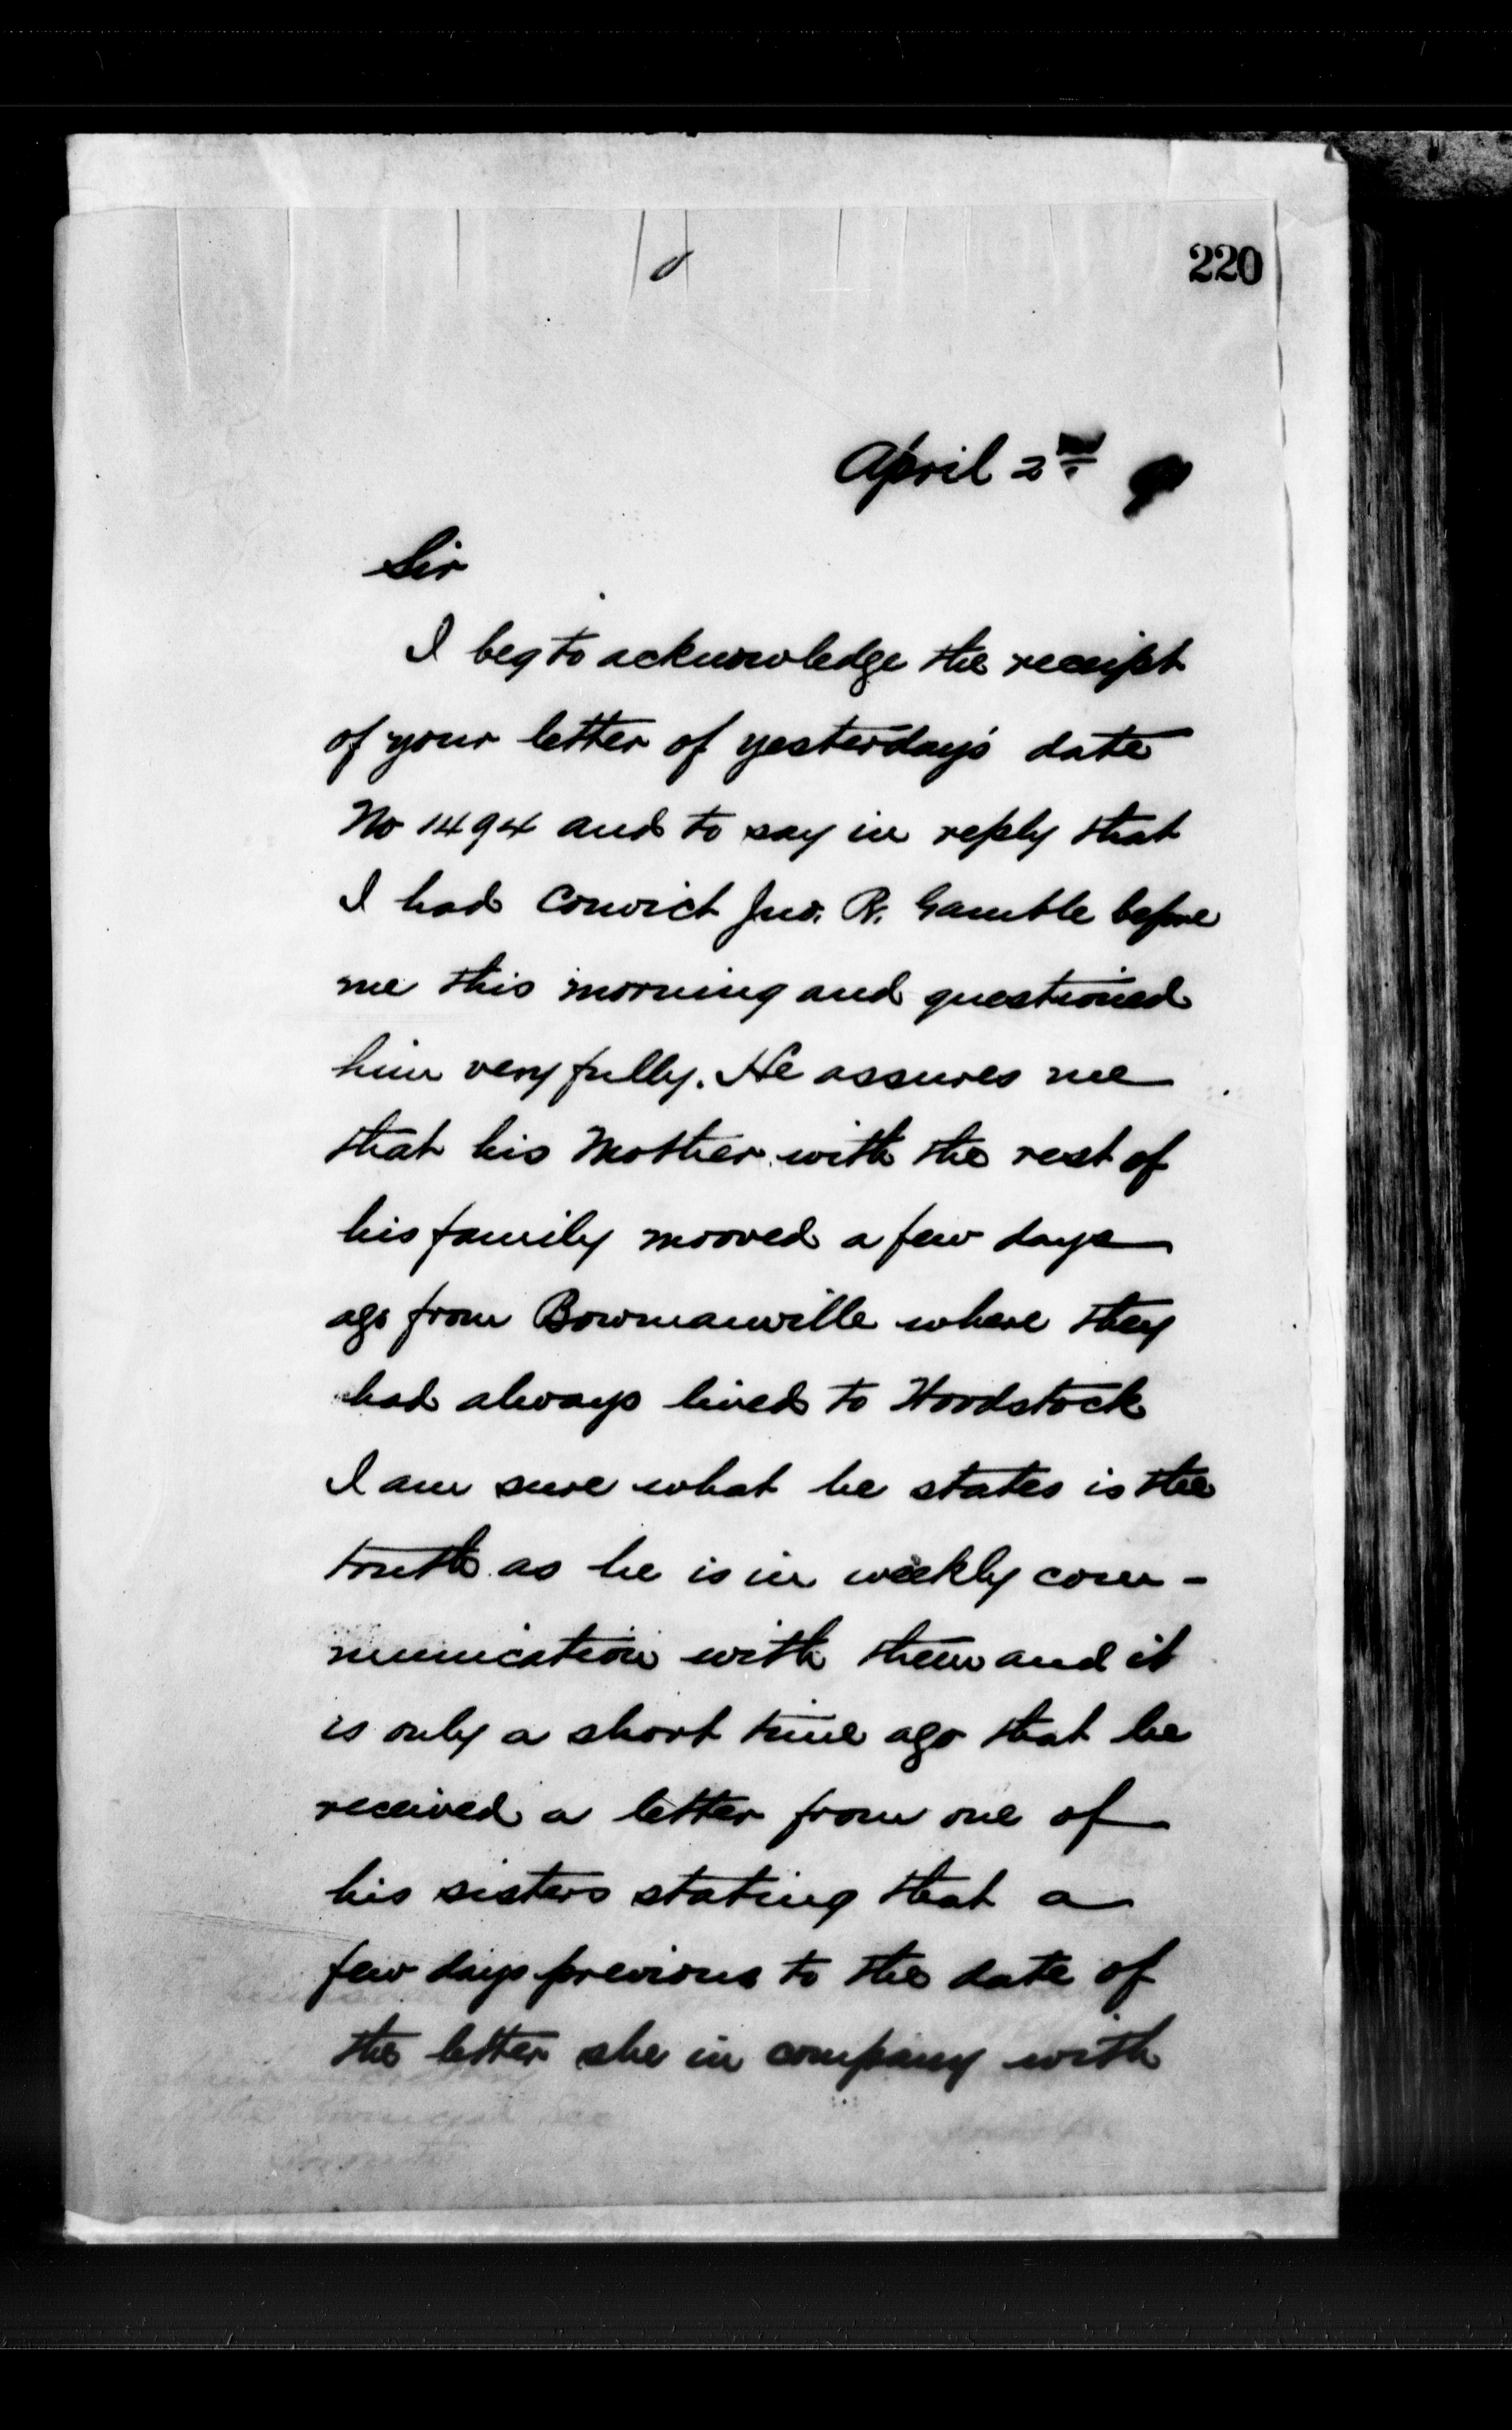 220
April 2nd
Sir
I beg to acknowledge the receipt
of your letter of yesterday's date
No 1494 and to say in reply that
I had Convict Jno. R. Gamble before
me this morning and questioned
him very fully. He assures me
that his Mother with the rest of
his family mooved a few days
ago from Bowmanville where they
had always lived to Woodstock
I am sure what he states is the
truth as he is in weekly com-
munication with them and it
is only a short time ago that he
received a letter from one of
his sisters stating that a
few days previous to the date of
the letter she in company with